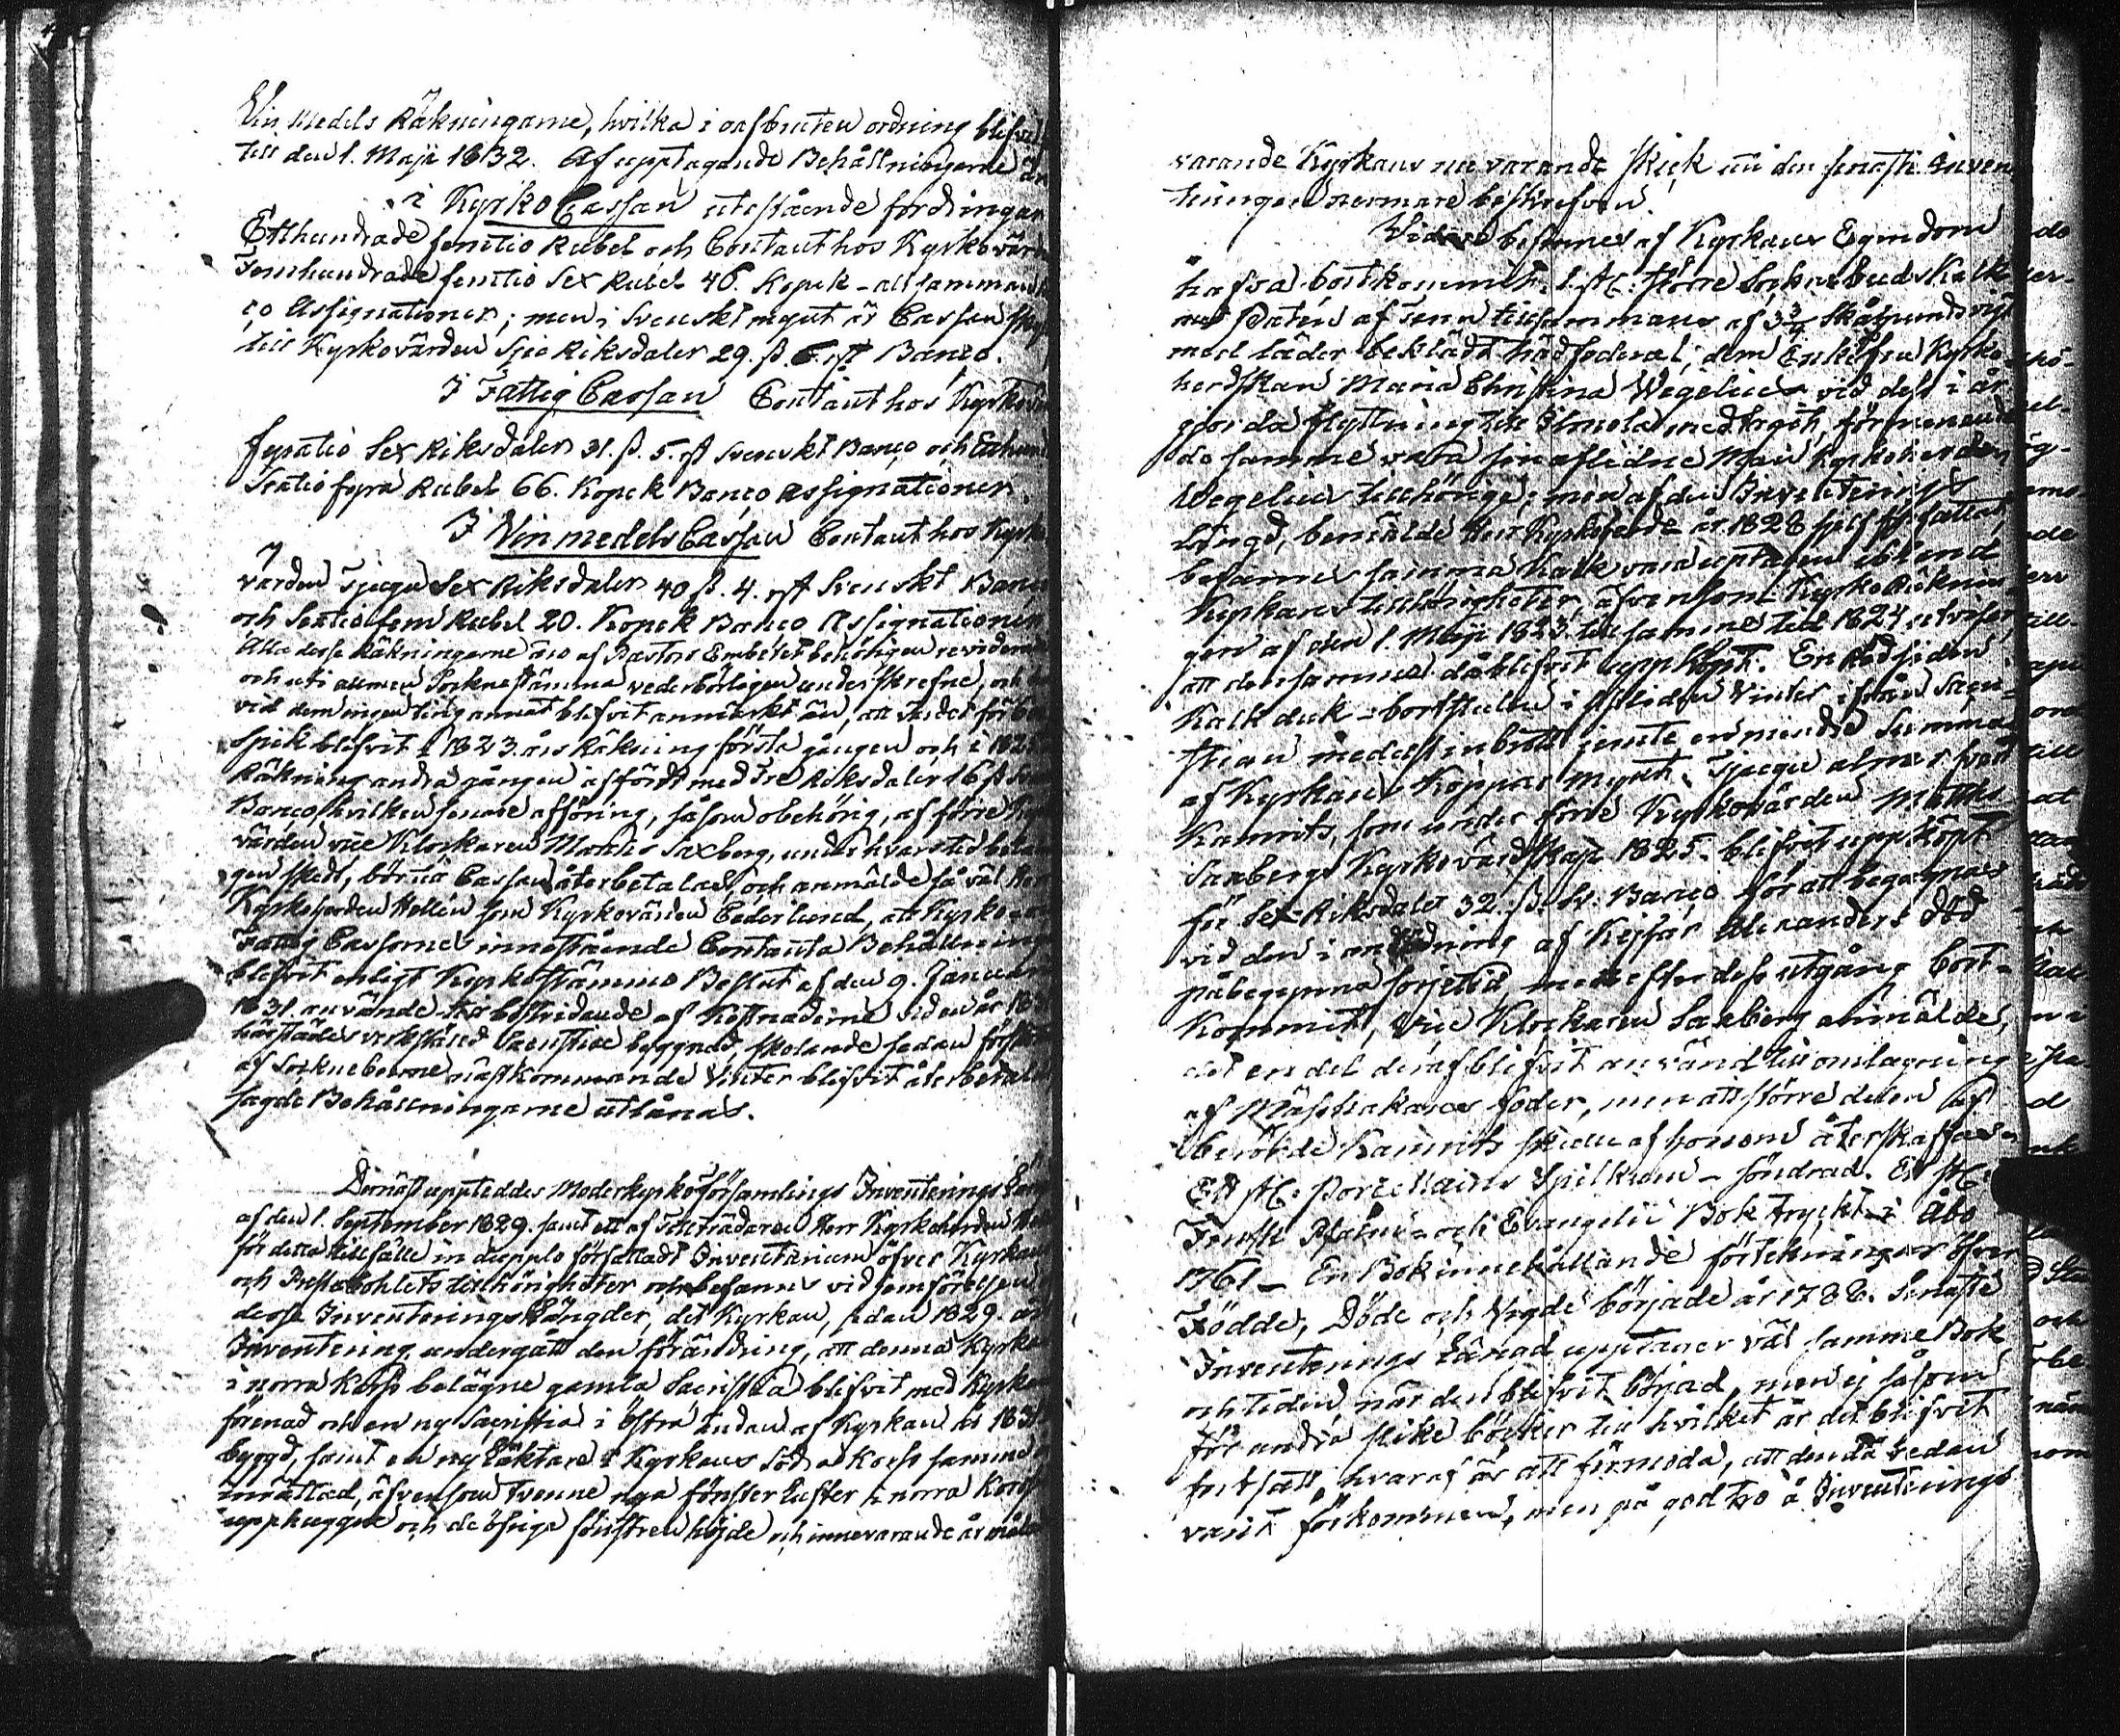 Vin Medels Räkningarne, hvilka i oafbruten ordning blifvit
till den 1. Maji 1832. Af upptagande Behållningarne är
i Kyrko Cassan utestående fordringar
Etthundrade femtio Rubel och Contant hos Kyrkovärd
Femhundrade femtio Sex Rubel 46. Kopek - allsammans
co Assignationer; men i Svenskt mynt är Cassan skyl
till Kyrkovärden Sju Riksdaler 29. ß. 6. rst Banco.
I Fattig Cassan Contant hos Kyrkovär
fyratio Sex Riksdaler 31. ß. 5. rst Svenskt Banco och Etthund
Sextio fyra Rubel 66. Kopek Banco Assignationer.
I Vinmedels Cassan Contant hos Kyrko
värden Tjugu Sex Riksdaler 40 ß. 4. rst Svenskt Banco
och Sextio fem Rubel 20. Kopek Banco Assignationer
Alla desse Räkningarne äro af Pastors Embetet behörigen reviderade
och uti allmen Sockne stämma vederbörligen underskrefne, och
vid dem ingen ting annat blifvit anmärkt än, att
spik blifvit i 1823. års Räkning första gången och i 182
Räkning andra gången afförd med Tre Riksdaler 16 ß
Banco, hvilken senare afföring, såsom obehörig, af förre Kyrko
värden vice Klockaren Saxberg, under hvars tid
gen skedt, bör til Cassan återbetalas, och anmälde så väl Herr
Kyrkoherden Hellén som Kyrkovärden Cederlund, att Kyrko- och
Fattig Cassornes innestående Contanta Behållning
blifvit enligt Kyrkostämmo Beslut af den 9. Januari
1831. använde till bestridande af Kostnaderna vid en år 183
härstädes verkstäld Sacristie byggnad, skolande sedan
af Sockneboerne nästkommande Vinter blifvit återbetalt
sagde Behållningarne utlånas.
Dernäst uppteddes Moderkyrkoförsamlings Inventerings Län
af den 1. September 1829. samt ett af Tillträdaren Herr Kyrkoherden
för detta tillfälle in duplo författadt Inventarium öfver Kyrkan
och Prestebohlets tillhörigheter och befanns vid jemförelsen
desse Inventerings Längder, det Kyrkan, sedan 1829. års
Inventering undergått den förändring, att denna Kyrka
i norra Korss belägne gamla Sacristia blifvit med Kyrkan
förenad och en ny Sacristia i östra ändan af Kyrkan år 183
byggd, samt en ny Läktare i Kyrkans Södra Korss samma
inrättad, äfvensom tvenne nya fönster Lufter i norra Korss
upphuggne och de öfriga fönstren höjde och innevarande år måla
varande Kyrkans nu varande skick uti den senaste Inven
teringen närmare beskrefven.
Vidare befinnes af Kyrkans Egendom
hafva bortkommit: 1. st. större Sockne buds Kalk
med Patén af Tenn tillsammans af 3 3/4 Skålpunds vigt
med läder beklädt trädfoderal, dem Enkefru Kyrko-
herdskan Maria Christina Wegelius vid dess i år
gjorda flyttning till Ilmola medtagit, förmenan
de samme vara sin aflidne Man Kyrkoherden
Wegelius tillhörige; men af den Inventerings
Längd, bemälde Herr Kyrkoherde år 1828 sjelf författat,
befinnes samma kalk vara uptagen ibland
Kyrkans tillhörigheter, äfvensom Kyrko Räknin
gen af den 1. Maji 1823. till samme tid 1824 utviser,
att densamma då blifvit uppköpt. En Rödsiden
Kalk duk - bortstulen i sistliden Vinter ifrån Sacri-
stian medelst inbrott jemte en mindre Summa
af Kyrkans Koppar Mynt. Tjugu alnar svart
Kamrits, som under förre Kyrkovärden Matths
Saxbergs Kyrkovärdskap 1825. blifvit uppköpt
för Sex Riksdaler 32. ß. Sv. Banco för att begagnas
vid den i anledning af Kejsar Alexanders död
påbegynna sorjetid men efter dess utgång bort-
Kommit, Vice Klockaren Saxberg anmälde,
det en del deraf blifvit använd till omlagning
af Mässhakarnes foder, men att större delen af
berörde Kamrits skulle af honom återskaffas.
Ett st. Porcellains Spilkum - söndrad. Ett st.
Finsk Psalm- och Evangelii Bok tryckt i Åbo
1761 - En Bok innehållande förtekningar öfver
Födde, Döde och Vigde började år 1788. Senaste
Inventerings Längd upptager väl samme Bok
och tiden när den blifvit börjad, men ej såsom
för andra slike böcker till hvilket år det blifvit
fortsatt, hvaraf är att förmoda, att den då redan
varit förkommen, men på god tro å Inventerings